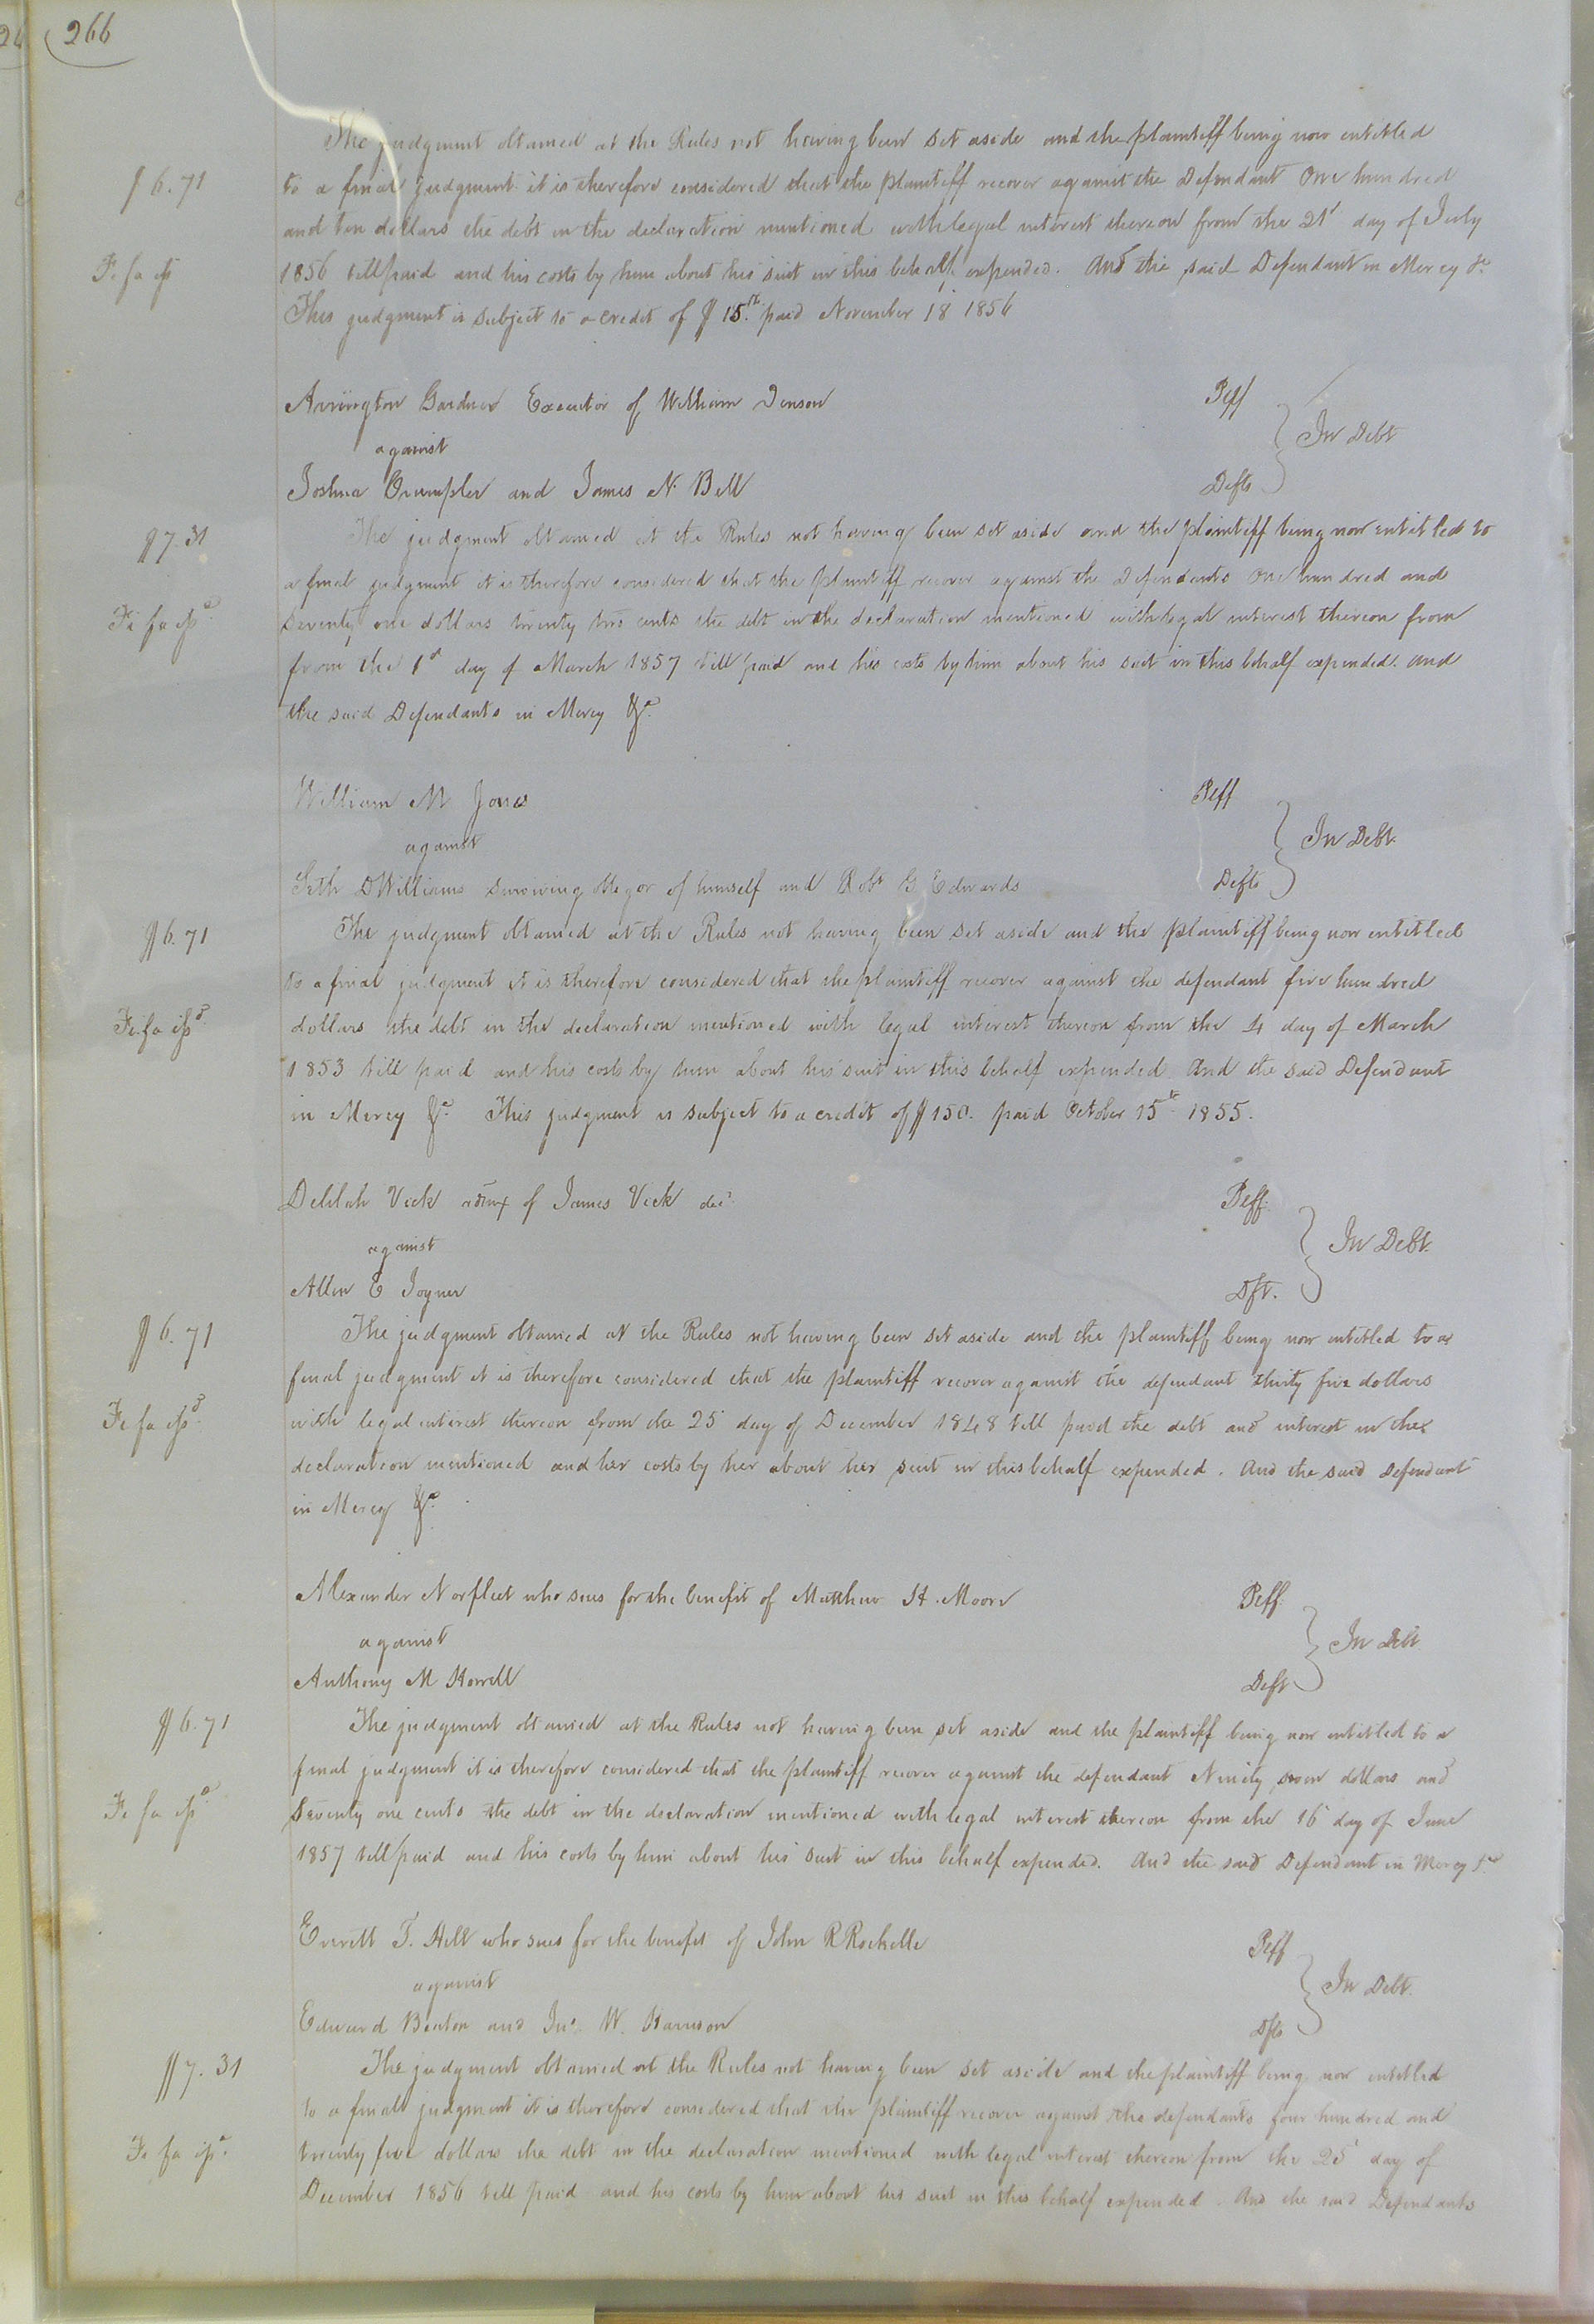 266
The judgment obtained at the Rules not having been set aside and the plaintiff being now entitled
$6.71
to a final judgment it is therefore considered that the plaintiff recover against the Defendant One hundred
and ten dollars the debt in the declaration mentioned with legal interest thereon from the 21st day of July
Fi fa isd
1856 till paid and his costs by him about his suit in this behalf expended. And the said Defendant in Mercy &c
This judgment is subject to a credit of $15. paid November 18 1856
Arrington Gardner Executor of William Denson Plff
against In Debt
Joshua Crumpler and James N. Bell Defts
$7.31
The judgment obtained at the Rules not having been set aside and the plaintiff being now entitled to
a final judgment it is therefore considered that the plaintiff recover against the Defendants One hundred and
Fi fa isd
Seventy one dollars twenty two cents the debt in the declaration mentioned with legal interest thereon from
from the 1st day of March 1857 till paid and his costs by him about his suit in this behalf expended. And
the said Defendants in Mercy &c.
William M Jones Plff
against In Debt.
Seth D Williams surviving obligor of himself and Robt G Edwards Defts
$6.71
The judgment obtained at the Rules not having been set aside and the plaintiff being now entitled
to a final judgment it is therefore considered that the plaintiff recover against the defendant five hundred
Fi fa issd
dollars the debt in the declaration mentioned with legal interest thereon from the 4 day of March
1853 till paid and his costs by him about his suit in this behalf expended And the said Defendant
in Mercy &c. This judgment is subject to a credit of $150. paid October 15th 1855.
Delilah Vick admx of James Vick decd. Plff.
against In Debt.
Allen E Joyner Dft.
$6.71
The judgment obtained at the Rules not having been set aside and the plaintiff being now entitled to a
final judgment it is therefore considered that the plaintiff recover against the defendant thirty five dollars
Fi fa issd
with legal interest thereon from the 25 day of December 1848 till paid the debt and interest in the
declaration mentioned and her costs by her about her suit in this behalf expended. And the said Defendant
in Mercy &c.
Alexander Norfleet who sues for the benefit of Matthew H. Moore Plff.
against In Debt
Anthony M Howell Deft
$6.71
The judgment obtained at the Rules not having been set aside and the plaintiff being now entitled to a
final judgment it is therefore considered that the plaintiff recover against the defendant Ninety seven dollars and
Fi fa isd
Seventy one cents the debt in the declaration mentioned with legal interest thereon from the 16 day of June
1857 till paid and his costs by him about his suit in this behalf expended. And the said Defendant in Mercy &c
Everett T. Hill who sues for the benefit of John R Rochelle Plff
against In Debt.
Edward Beaton and Jno. W. Harrison Dfts
$7.31
The judgment obtained at the Rules not having been set aside and the plaintiff being now entitled
to a final judgment it is therefore considered that the plaintiff recover against the defendants four hundred and
Fi fa isd.
twenty five dollars the debt in the declaration mentioned with legal interest thereon from the 25 day of
December 1856 till paid and his costs by him about his suit in this behalf expended. And the said Defendants